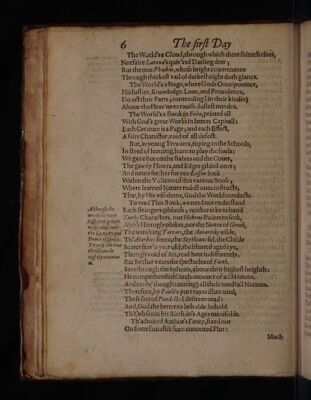 6 The first Day
The World's a Cloud, through which there shineth cleer,
Not faire Latona's quiv'red Darling deer;
But the true Phœbus, whose bright countenance
Through thickest vail of darkest night doth glance.
The World's a Stage, where Gods Omnipotence,
His Iustice, Knowledge, Loue, and Prouidence,
Do act their Parts; contending (in their kindes)
Aboue the Heav'ns to rauish dullest mindes.
The World's a Book in Folio, printed all
With God's great Works in letters Capitall:
Each Creature is a Page; and each Effect,
A faire Character, void of all defect.
But, as young Trwants, toying in the Schools,
In steed of learning, learn to play the fools:
We gaze but on the Babies and the Couer,
The gawdy Flowrs, and Edges gilded ouer;
And neuer farther for our Lesson look
Within the Volume of this various Book;
Where learned Nature rudest ones instructs,
That, by His wisedome, God the World conducts.
To read This Book, we need not vnderstand
Each Strangers gibbrish; neither take in hand
Turks Characters, nor Hebrew Points to seek,
Nyle's Hieroglyphikes, nor the Notes of Greek.
The wandring Tartars, the Antartiks wilde,
Th'Alarbies fierce, the Scythians fel, the Childe
Scarce seav'n year old, the bleared aged eye,
Though void of Art, read heer indifferently.
But he that wears the spectacles of Faith,
Sees through the Sphears, aboue their highest heighth:
He comprehends th'Arch-moouer of all Motions,
And reads (though running) all these needfull Notions.
Therefore, by Faith's pure rayes illumined,
These sacred Pandects I desire to read:
And, God the better to behold, behold
Th'Orb from his Birth, in's Ages manifold.
Th'admired Author's Fancy, fixed not
On some fantastik fore-conceited Plot:
Much